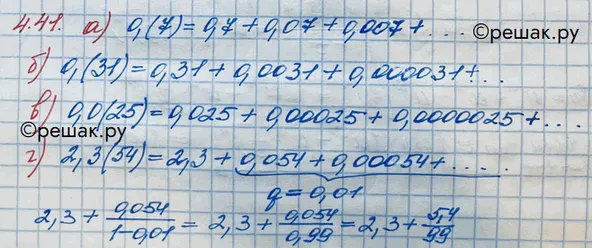 4.41. а) 0,(7) = 0,7 + 0,07 + 0,007 + ....
©решак.ру
б) 0,(31) = 0,31 + 0,0031 + 0,000031 + ...
в) 0,0(25) = 0,025 + 0,00025 + 0,0000025 + ...
©решак.ру
г) 2,3(54) = 2,3 + 0,054 + 0,00054 + .....
q = 0,01
2,3 + 0,054/1-0,01 = 2,3 + 0,054/0,99 = 2,3 + 5,4/99